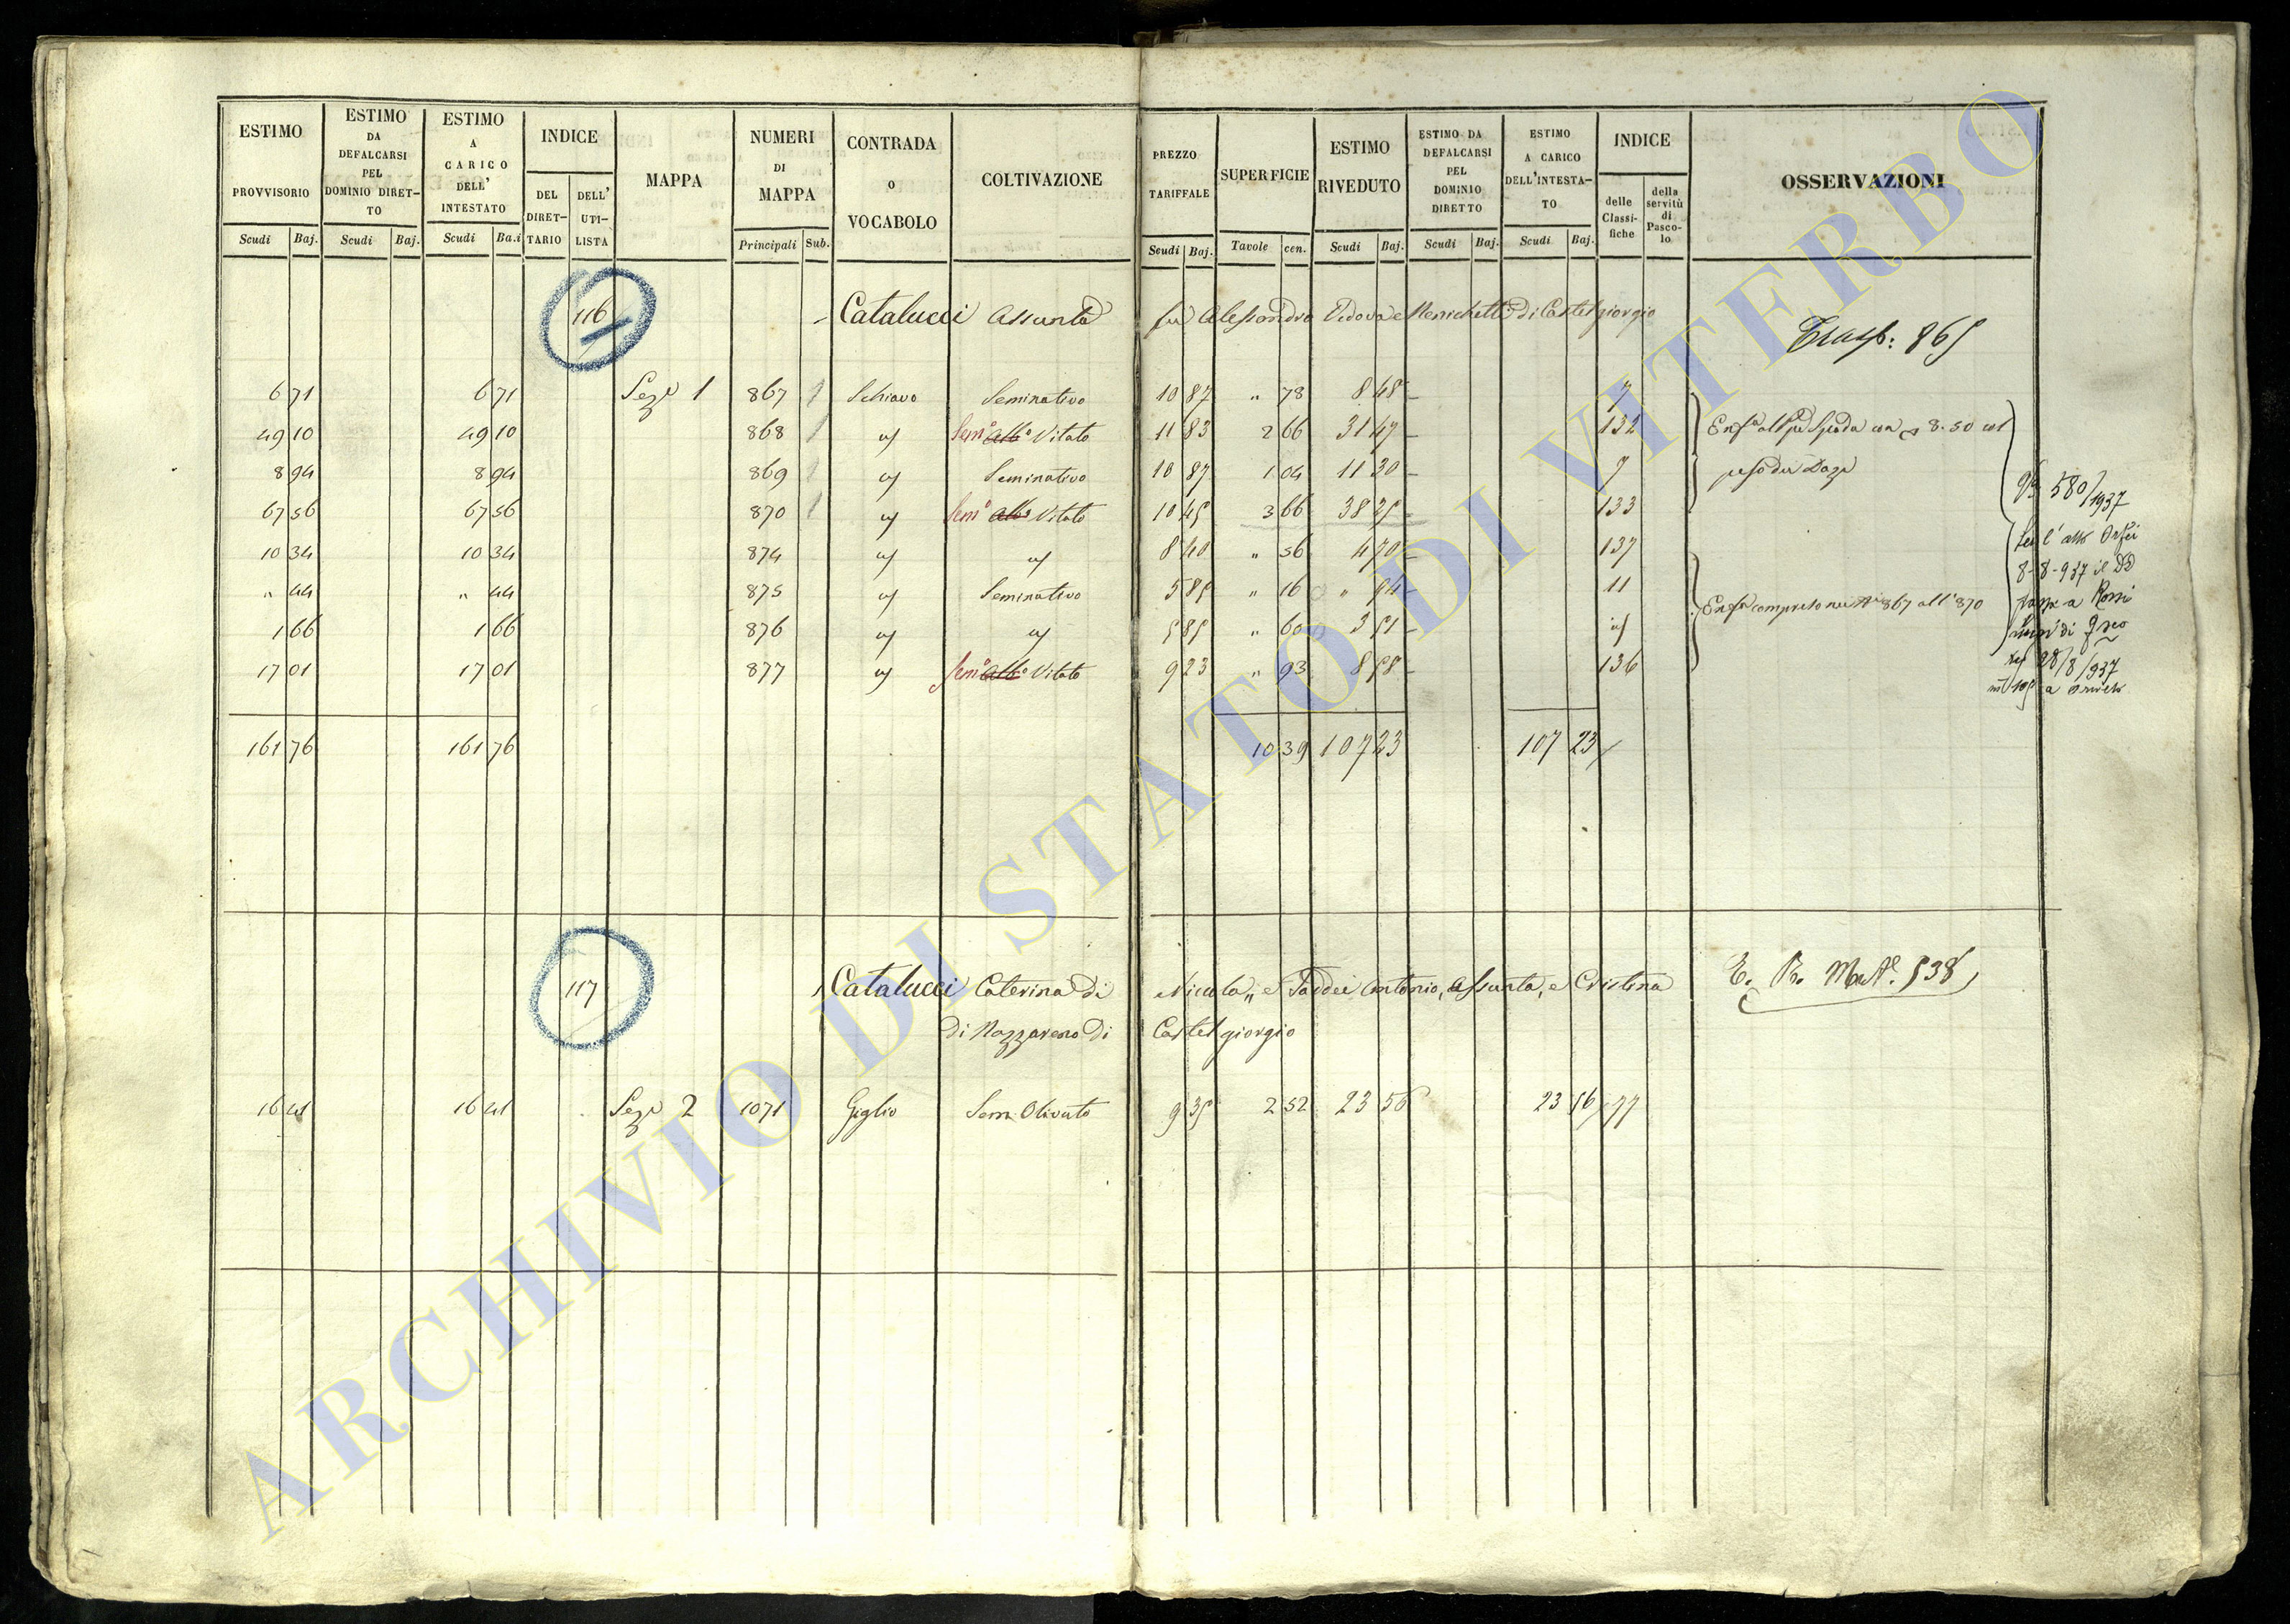 ESTIMO PROVVISORIO Scudi Baj.
ESTIMO DA DEFALCARSI PEL DOMINIO DIRET-TO Scudi Baj.
ESTIMO A CARICO DELL' INTESTATO Scudi Ba.i
INDICE DEL DIRET-TARIO DELL' UTI-LISTA
MAPPA
NUMERI DI MAPPA Principali Sub.
CONTRADA O VOCABOLO
COLTIVAZIONE
PREZZO TARIFFALE Scudi Baj.
SUPERFICIE Tavole cen.
ESTIMO RIVEDUTO Scudi Baj.
ESTIMO DA DEFALCARSI PEL DOMINIO DIRETTO Scudi Baj.
ESTIMO A CARICO DELL'INTESTA-TO Scudi Baj.
INDICE delle Classi-fiche della servitù di Pasco-lo
OSSERVAZIONI
116 Catalucci Assunta fu Alessandro Vedova Menichetti di Castelgiorgio
Trasp: 865
6 71 6 71 Sezе 1 867 1 Schiavo Seminativo 10 87 " 78 8 48 7
49 10 49 10 868 1 Semo Vitato 11 83 2 66 31 47 132
8 94 8 94 869 1 Seminativo 10 87 1 04 11 30 7
67 56 67 56 870 1 Semo Vitato 10 45 3 66 38 25 133
10 34 10 34 874 8 40 " 56 4 70 137
" 44 " 44 875 Seminativo 5 85 " 16 " 94 11
1 66 1 66 876 5 85 " 60 3 51
17 01 17 01 877 Semo Vitato 9 23 " 93 8 58 136
8.50
compreso nei Ni 867 all' 870
580/1937
8-8-937 il
a Rossi
28/8/937
161 76 161 76 10 39 107 23 107 23
117 Catalucci Caterina Di Niccola, e Taddei Antonio, Assunta, e Cristina
E. R. Mat. 538
di Nazzareno Di Castelgiorgio
16 41 16 41 Sezе 2 1071 Giglio Sem Olivato 9 35 2 52 23 56 23 56 77
ARCHIVIO DI STATO DI VITERBO